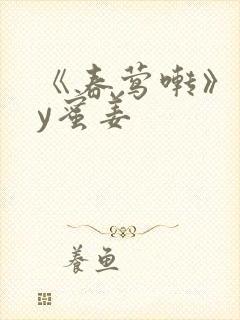 《春莺啭》
y蜜姜
养鱼